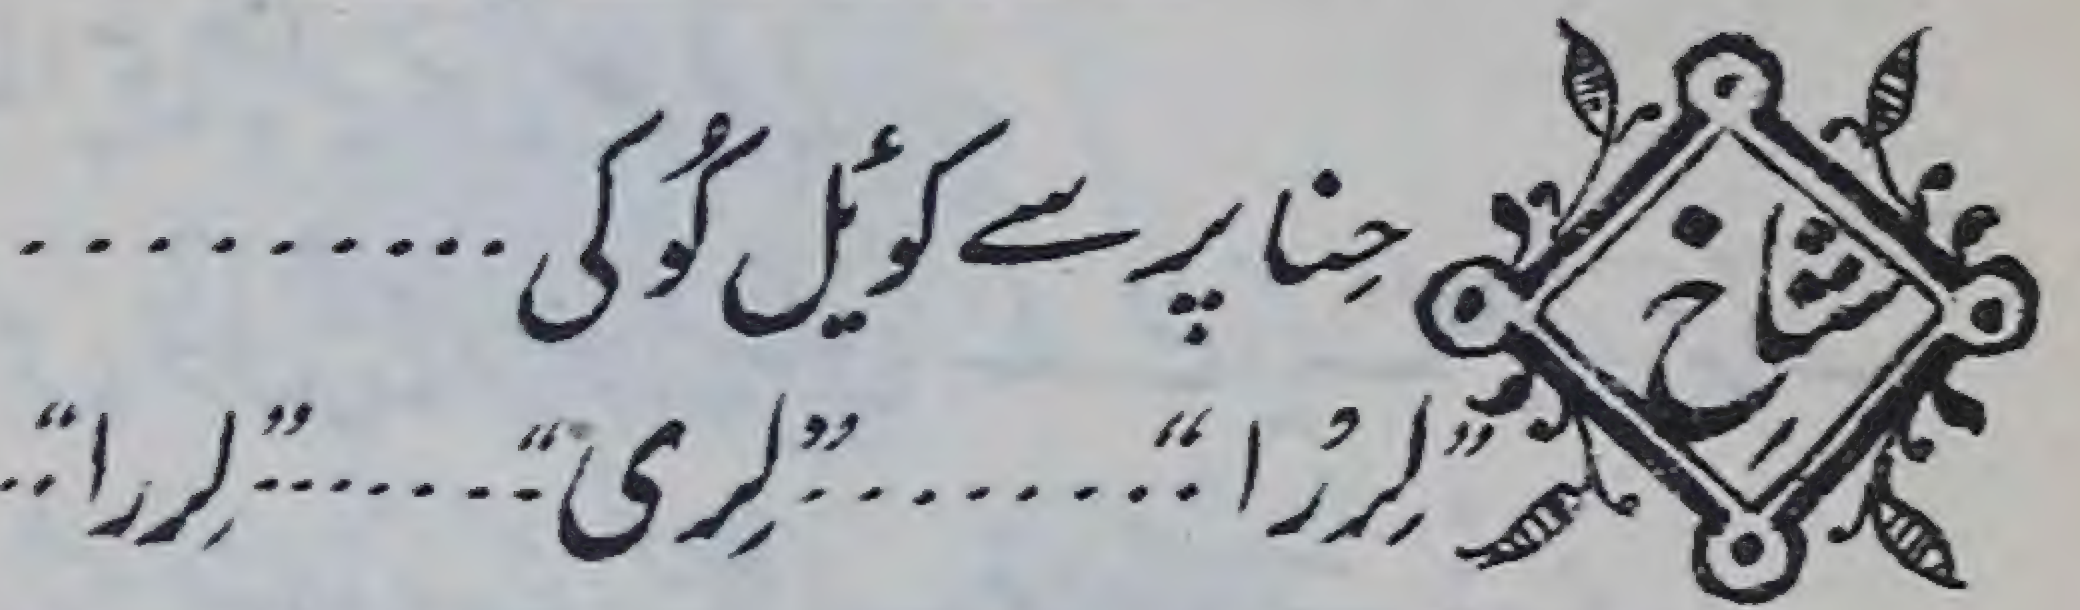 شاخِ حِنا پر سے کوئیل کُوکی ..........
”لِررُا“ .......... ”لِری“ ....... ”لِررا“ ..